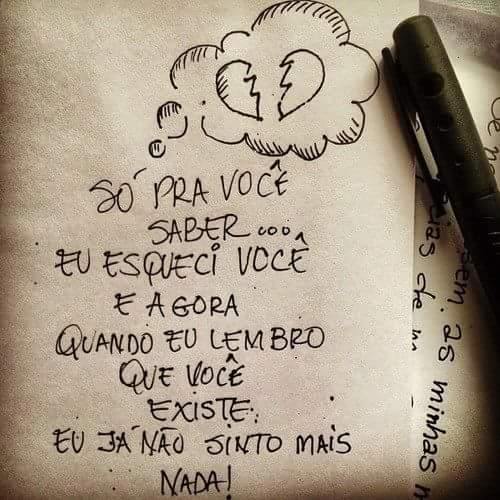 SÓ PRA VOCÊ
SABER...
EU ESQUECI VOCÊ
E AGORA
QUANDO EU LEMBRO
QUE VOCÊ
EXISTE.
EU JÁ NÃO SINTO MAIS
NADA!
sem as minhas